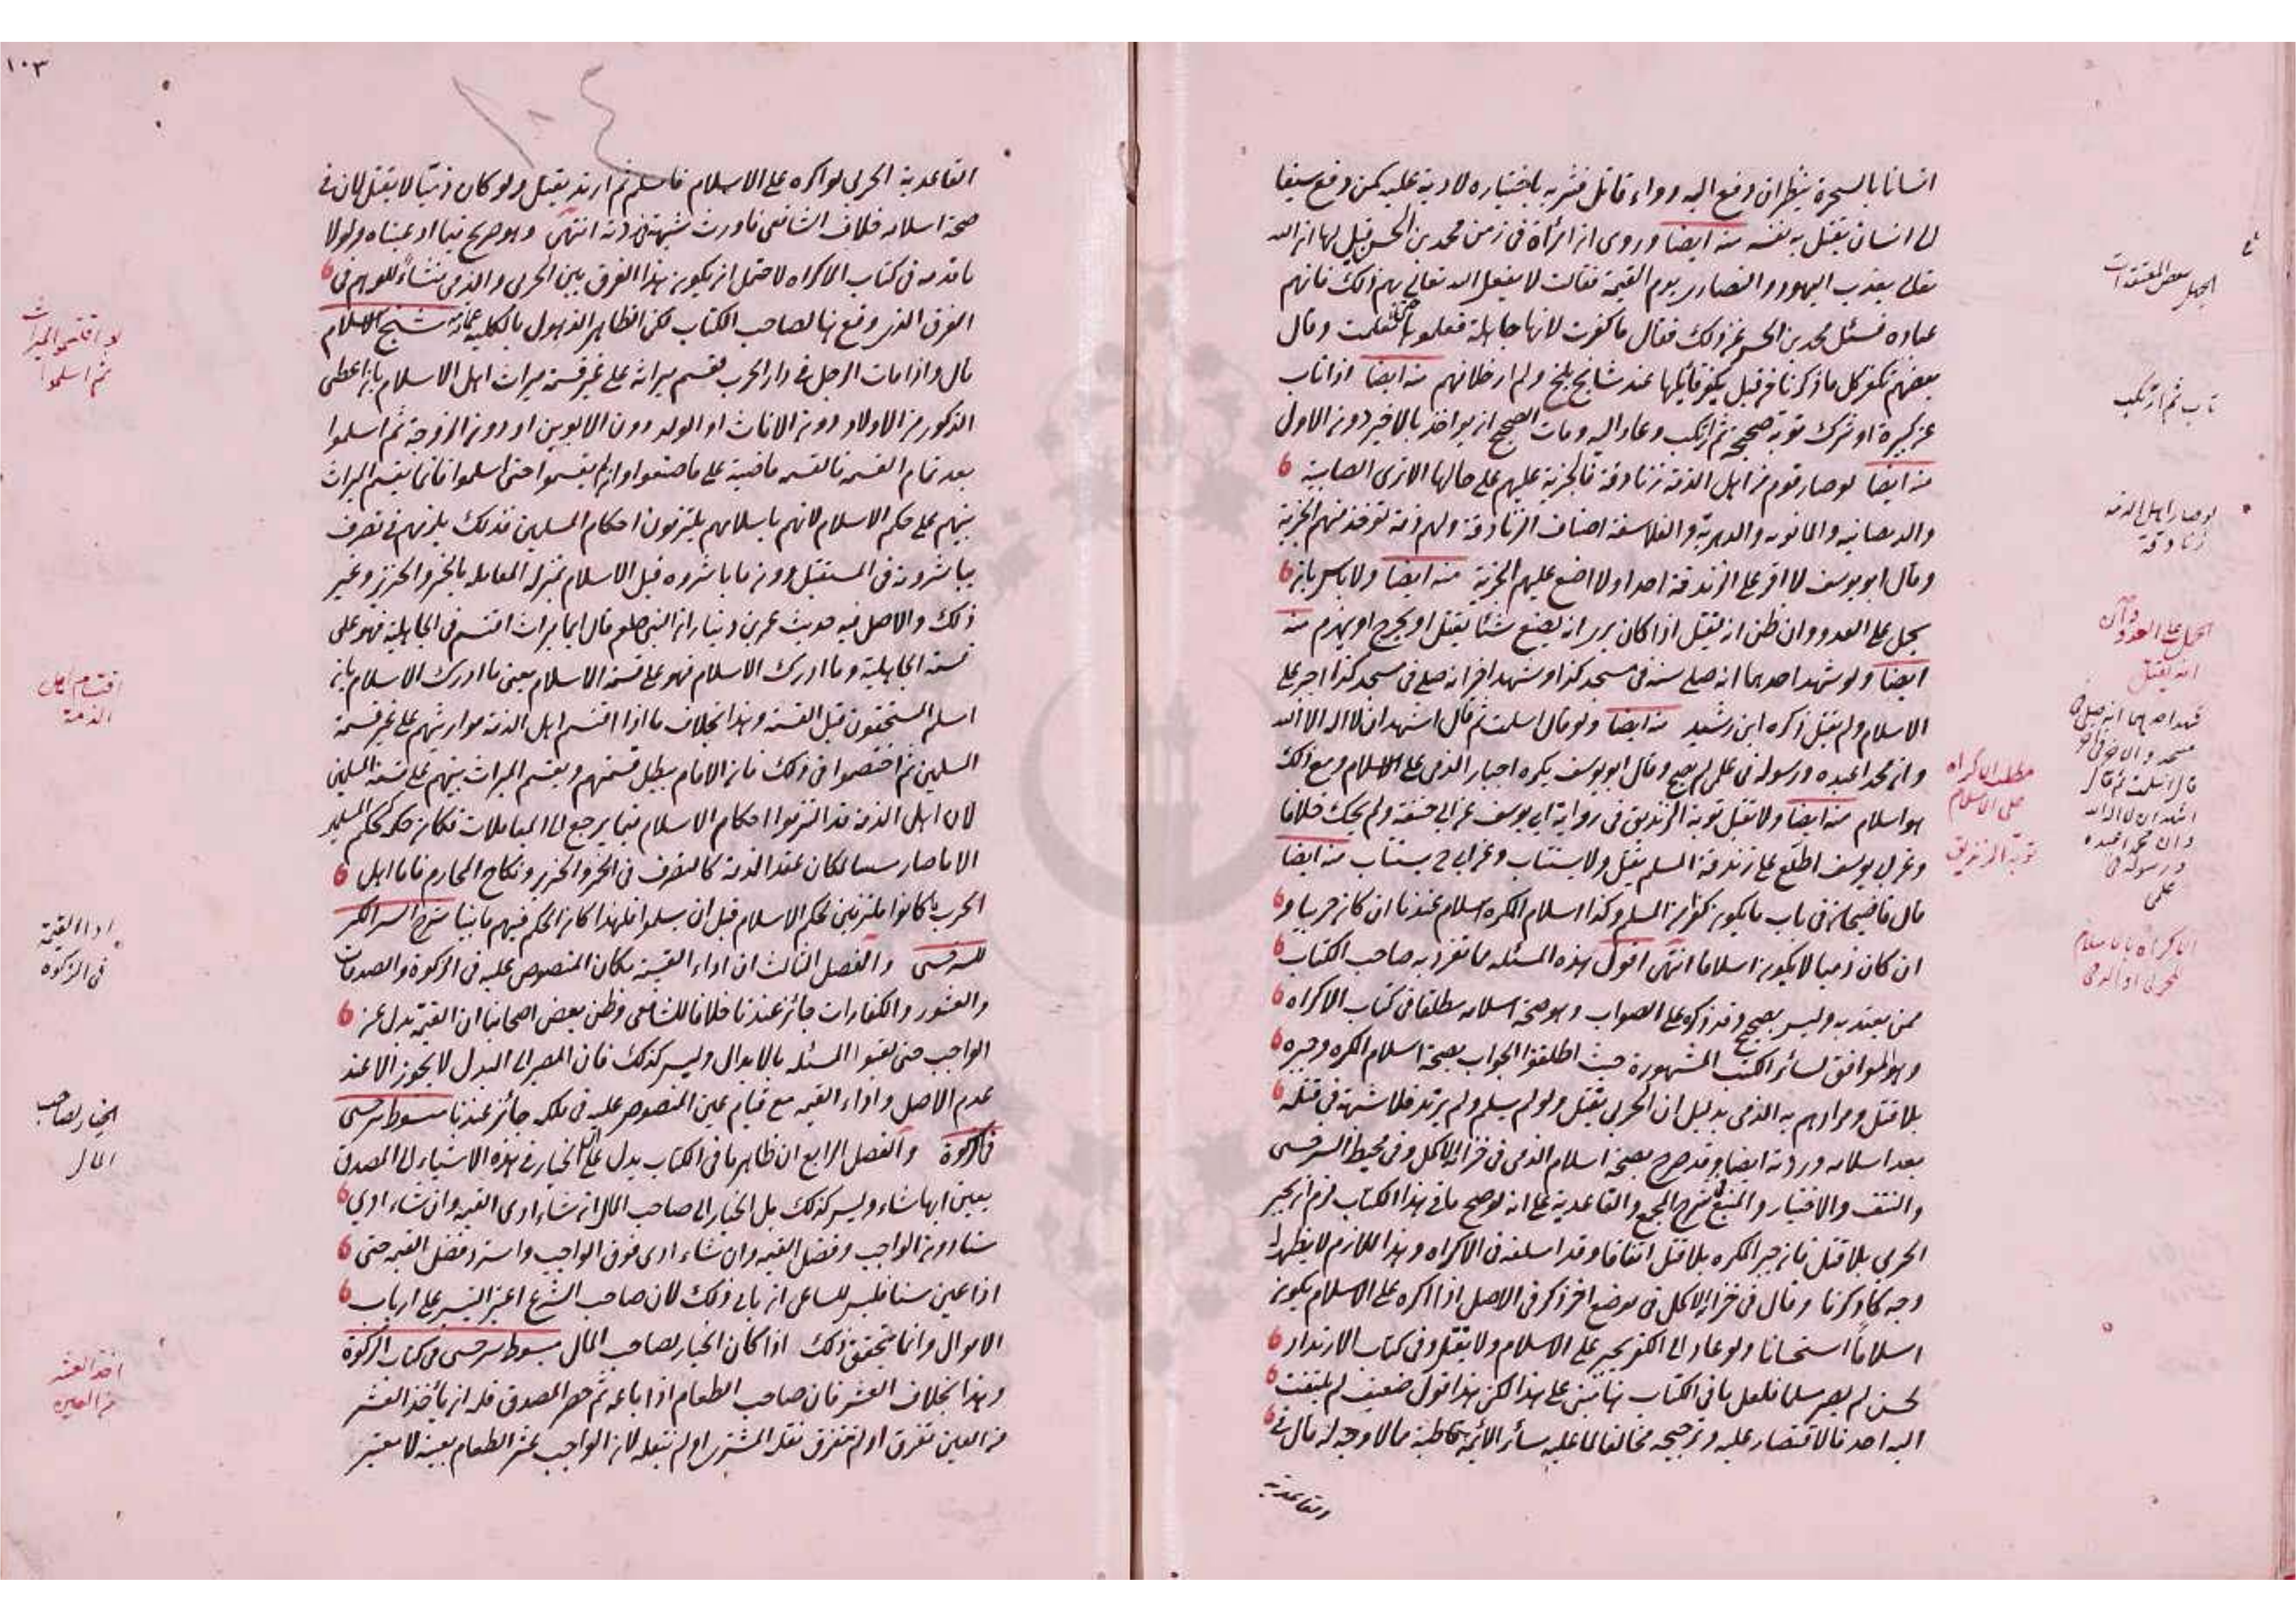 انسانا بالسحرة ينظر ان دفع اليه دواء قاتل فشربه باختياره لا دية عليه كمن دفع سيفا
الى انسان يقتل به نفسه منه ايضا وروى ان امرأة فى زمن محمد بن الحسن قيل لها ان الله
تعالى يعذب اليهود والنصارى يوم القيمة فقالت لا يفعل الله تعالى بهم ذلك فانهم
عباده فسئل محمد بن الحسن عن ذلك فقال ما كفرت لانها جاهلة فعلموها حتى تعلمت وقال
بعضهم
عن كبيرة او شرك توبة صحيحة ثم ارتكب وعاد اليه ومات الصحيح انه يؤاخذ بالاخير دون الاول
منه ايضا لو صار قوم من اهل الذمة زنادقة فالجزية عليهم على حالها الا ترى الصابية
والديصانيه والمانويه والدهرية والفلاسفة اصناف الزنادقة ولهم ذمة تؤخذ منهم الجزية
وقال ابو يوسف لا اقر على الزندقة احدا ولا اضع عليهم الجزية منه ايضا ولا بأس بان
يحمل على العدو وان ظن انه يقتل اذا كان يرى انه يصنع شئا يقتل او يجرح او يهزم منه
ايضا ولو شهد احدهما انه صلى سنة فى مسجد كذا وشهد اخر انه صلى فى مسجد كذا اجبر على
الاسلام ولم يقتل ذكره ابن رشيد منه ايضا ولو قال اسلمت ثم قال اشهد ان لا اله الا الله
وان محمدا عبده ورسوله فى علمى لم يصح وقال ابو يوسف يكره اجبار الذمى على الاسلام ومع ذلك
هو اسلام منه ايضا ولا تقبل توبة الزنديق فى رواية ابى يوسف عن ابى حنيفة ولم يحك خلافا
وعن ابى يوسف اطلع على زندقة المسلم يقتل ولا يستتاب وعن ابى ح يستتاب منه ايضا
قال قاضيخان فى باب ما يكون كفرا من المسلم وكذا اسلام المكره اسلام عندنا ان كان حربيا و
ان كان ذميا لا يكون اسلاما انتهى اقول هذه المسئله مما تفرد به صاحب الكتاب
ممن يعتد به وليس بصحيح وقد ذكره على الصواب وهو صحة اسلامه مطلقا فى كتاب الاكراه
وهو الموافق لسائر الكتب المشهورة حيث اطلقوا الجواب بصحة اسلام المكره وجبره
بلا قتل ومرادهم به الذمى بدليل ان الحربى يقتل ولو لم يسلم ولم يرتد فلا شبهة فى قتله
بعد اسلامه وردته ايضا وقد صرح بصحة اسلام الذمى فى خزانة الاكمل وفى محيط السرخسى
والنتف والاختيار والمنبع شرح المجمع والقاعدية على انه لو صح ما فى هذا الكتاب لزم ان يجبر
الحربى بلا قتل فانه جبر المكره بلا قتل اتفاقا وقد اسلفه فى الاكراه وهذا اللازم لا يظهر له
وجه كما ذكرنا وقال فى خزانة الاكمل فى موضع اخر ذكر فى الاصل اذا اكره على الاسلام يكون
اسلاما استحسانا ولو عاد الى الكفر يجبر على الاسلام ولا يقتل وفى كتاب الارتداد
لحسن لم يصر مسلما فلعل ما فى الكتاب يبتنى على هذا لكن هذا قول ضعيف لم يلتفت
اليه احد فالاقتصار عليه وترجيحه مخالفا لما عليه سائر الائمة قاطبة مما لا وجه له قال فى
القاعدية
الجهل ببعض المعتقدات
تاب ثم ارتكب
لو صار اهل الذمه
زنادقة
الحمل على العدو وان
انه يقتل
شهد احدهما انه صلى فى
قال اسلمت ثم قال
اشهد ان لا اله الا الله
وان محمدا عبده
ورسوله فى
علمى
مطلب الاكراه
على الاسلام
توبة الزنديق
الاكراه بالاسلام
للحربى او الذمى
١٠٣
١٠٤
القاعدية الحربى لو اكره على الاسلام فاسلم ثم ارتد يقتل ولو كان ذميا لا يقتل لان فى
صحة اسلامه خلاف الشافعى فاورث شبهة فى ردته انتهى وهو صريح فيما ادعيناه ولولا
ما قدمه فى كتاب الاكراه لاحتمل ان يكون هذا الفرق بين الحربى والذمى منشاء للوهم فى
الفرق الذى وقع هنا لصاحب الكتاب لكن الظاهر الذهول بالكليه شيخ الاسلام
قال واذا مات الرجل فى دار الحرب فقسم ميراثه على غير قسمة ميراث اهل الاسلام بان اعطى
الذكور من الاولاد دون الاناث او الولد دون الابوين او دون الزوجة ثم اسلموا
بعد تمام القسمة فالقسمه ماضية على ما صنعوا وان لم يقسموا حتى اسلموا فانما يقسم الميراث
بينهم على حكم الاسلام لانهم باسلامهم يلتزمون احكام المسلمين فذلك يلزمهم فى تصرف
يباشرونه فى المستقبل دون ما باشروه قبل الاسلام بمنزلة المعامله بالخمر والخنزير وغير
ذلك والاصل فيه حديث عمر بن دينار ان النبى صلعم قال ايما ميراث اقتسم فى الجاهلية فهو على
قسمة الجاهلية وما ادرك الاسلام فهو على قسمة الاسلام يعنى ما ادرك الاسلام بان
اسلم المستحقون قبل القسمة وهذا بخلاف ما اذا اقتسم اهل الذمة مواريثهم على غير قسمة
المسلمين ثم اختصموا فى ذلك فان الامام يبطل قسمتهم ويقسم الميراث بينهم على قسمة المسلمين
لان اهل الذمة قد التزموا احكام الاسلام فيما يرجع الى المعاملات فكان حكمه كحكم المسلمين
الا ما صار مستثنا لمكان عقد الذمة كالتصرف فى الخمر والخنزير ونكاح المحارم فاما اهل
الحرب ما كانوا ملتزمين لحكم الاسلام قبل ان يسلموا فلهذا كان الحكم فيهم ما بينا شرح السير الكبير
للسرخسى والفصل الثالث ان اداء القيمة مكان المنصوص عليه فى الزكوة والصدقات
والعشور والكفارات جائز عندنا خلافا للشافعى وظن بعض اصحابنا ان القيمة بدل عن
الواجب حتى لقبوا المسئله بالابدال وليس كذلك فان المصير الى البدل لا يجوز الا عند
عدم الاصل واداء القيمه مع قيام عين المنصوص عليه فى ملكه جائز عندنا مبسوط سرخسى
فى الزكوة والفصل الرابع ان ظاهر ما فى الكتاب يدل على ان الخيار فى هذه الاشياء الى المصدق
يعين ايها شاء وليس كذلك بل الخيار الى صاحب المال ان شاء ادى القيمه وان شاء ادى
سنا دون الواجب وفضل القيمه وان شاء ادى فوق الواجب واسترد فضل القيمه حتى
اذا عين سنا فليس للساعى ان يابى ذلك لان صاحب الشرع اعتبر التيسير على ارباب
الاموال وانما يتحقق ذلك اذا كان الخيار لصاحب المال مبسوط سرخسى فى كتاب الزكوة
وهذا بخلاف العشر فان صاحب الطعام اذا باعه ثم حضر المصدق فله ان يأخذ العشر
من العين تفرق او لم يتفرق نقله المشترى او لم ينقله لان الواجب عشر الطعام بعينه لا معتبر
لو اقتسموا الميراث
ثم اسلموا
اقتسام اهل
الذمة
اداء القيمة
فى الزكوة
الخيار لصاحب
المال
اخذ العشر
من العين